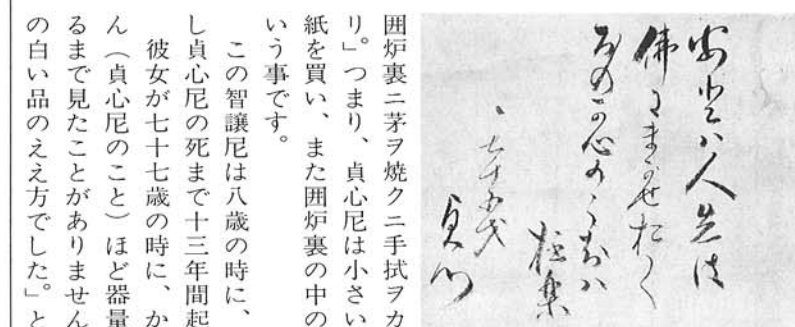 あとハ人先は
佛にまかせおく
おのか心のうちハ
極楽
貞心
囲炉裏ニ茅ヲ焼クニ手拭ヲカ
リ。」つまり、貞心尼は小さい
紙を買い、また囲炉裏の中の
いう事です。
この智譲尼は八歳の時に、
し貞心尼の死まで十三年間起
彼女が七十七歳の時に、か
ん（貞心尼のこと）ほど器量
るまで見たことがありません
の白い品のええ方でした。」と